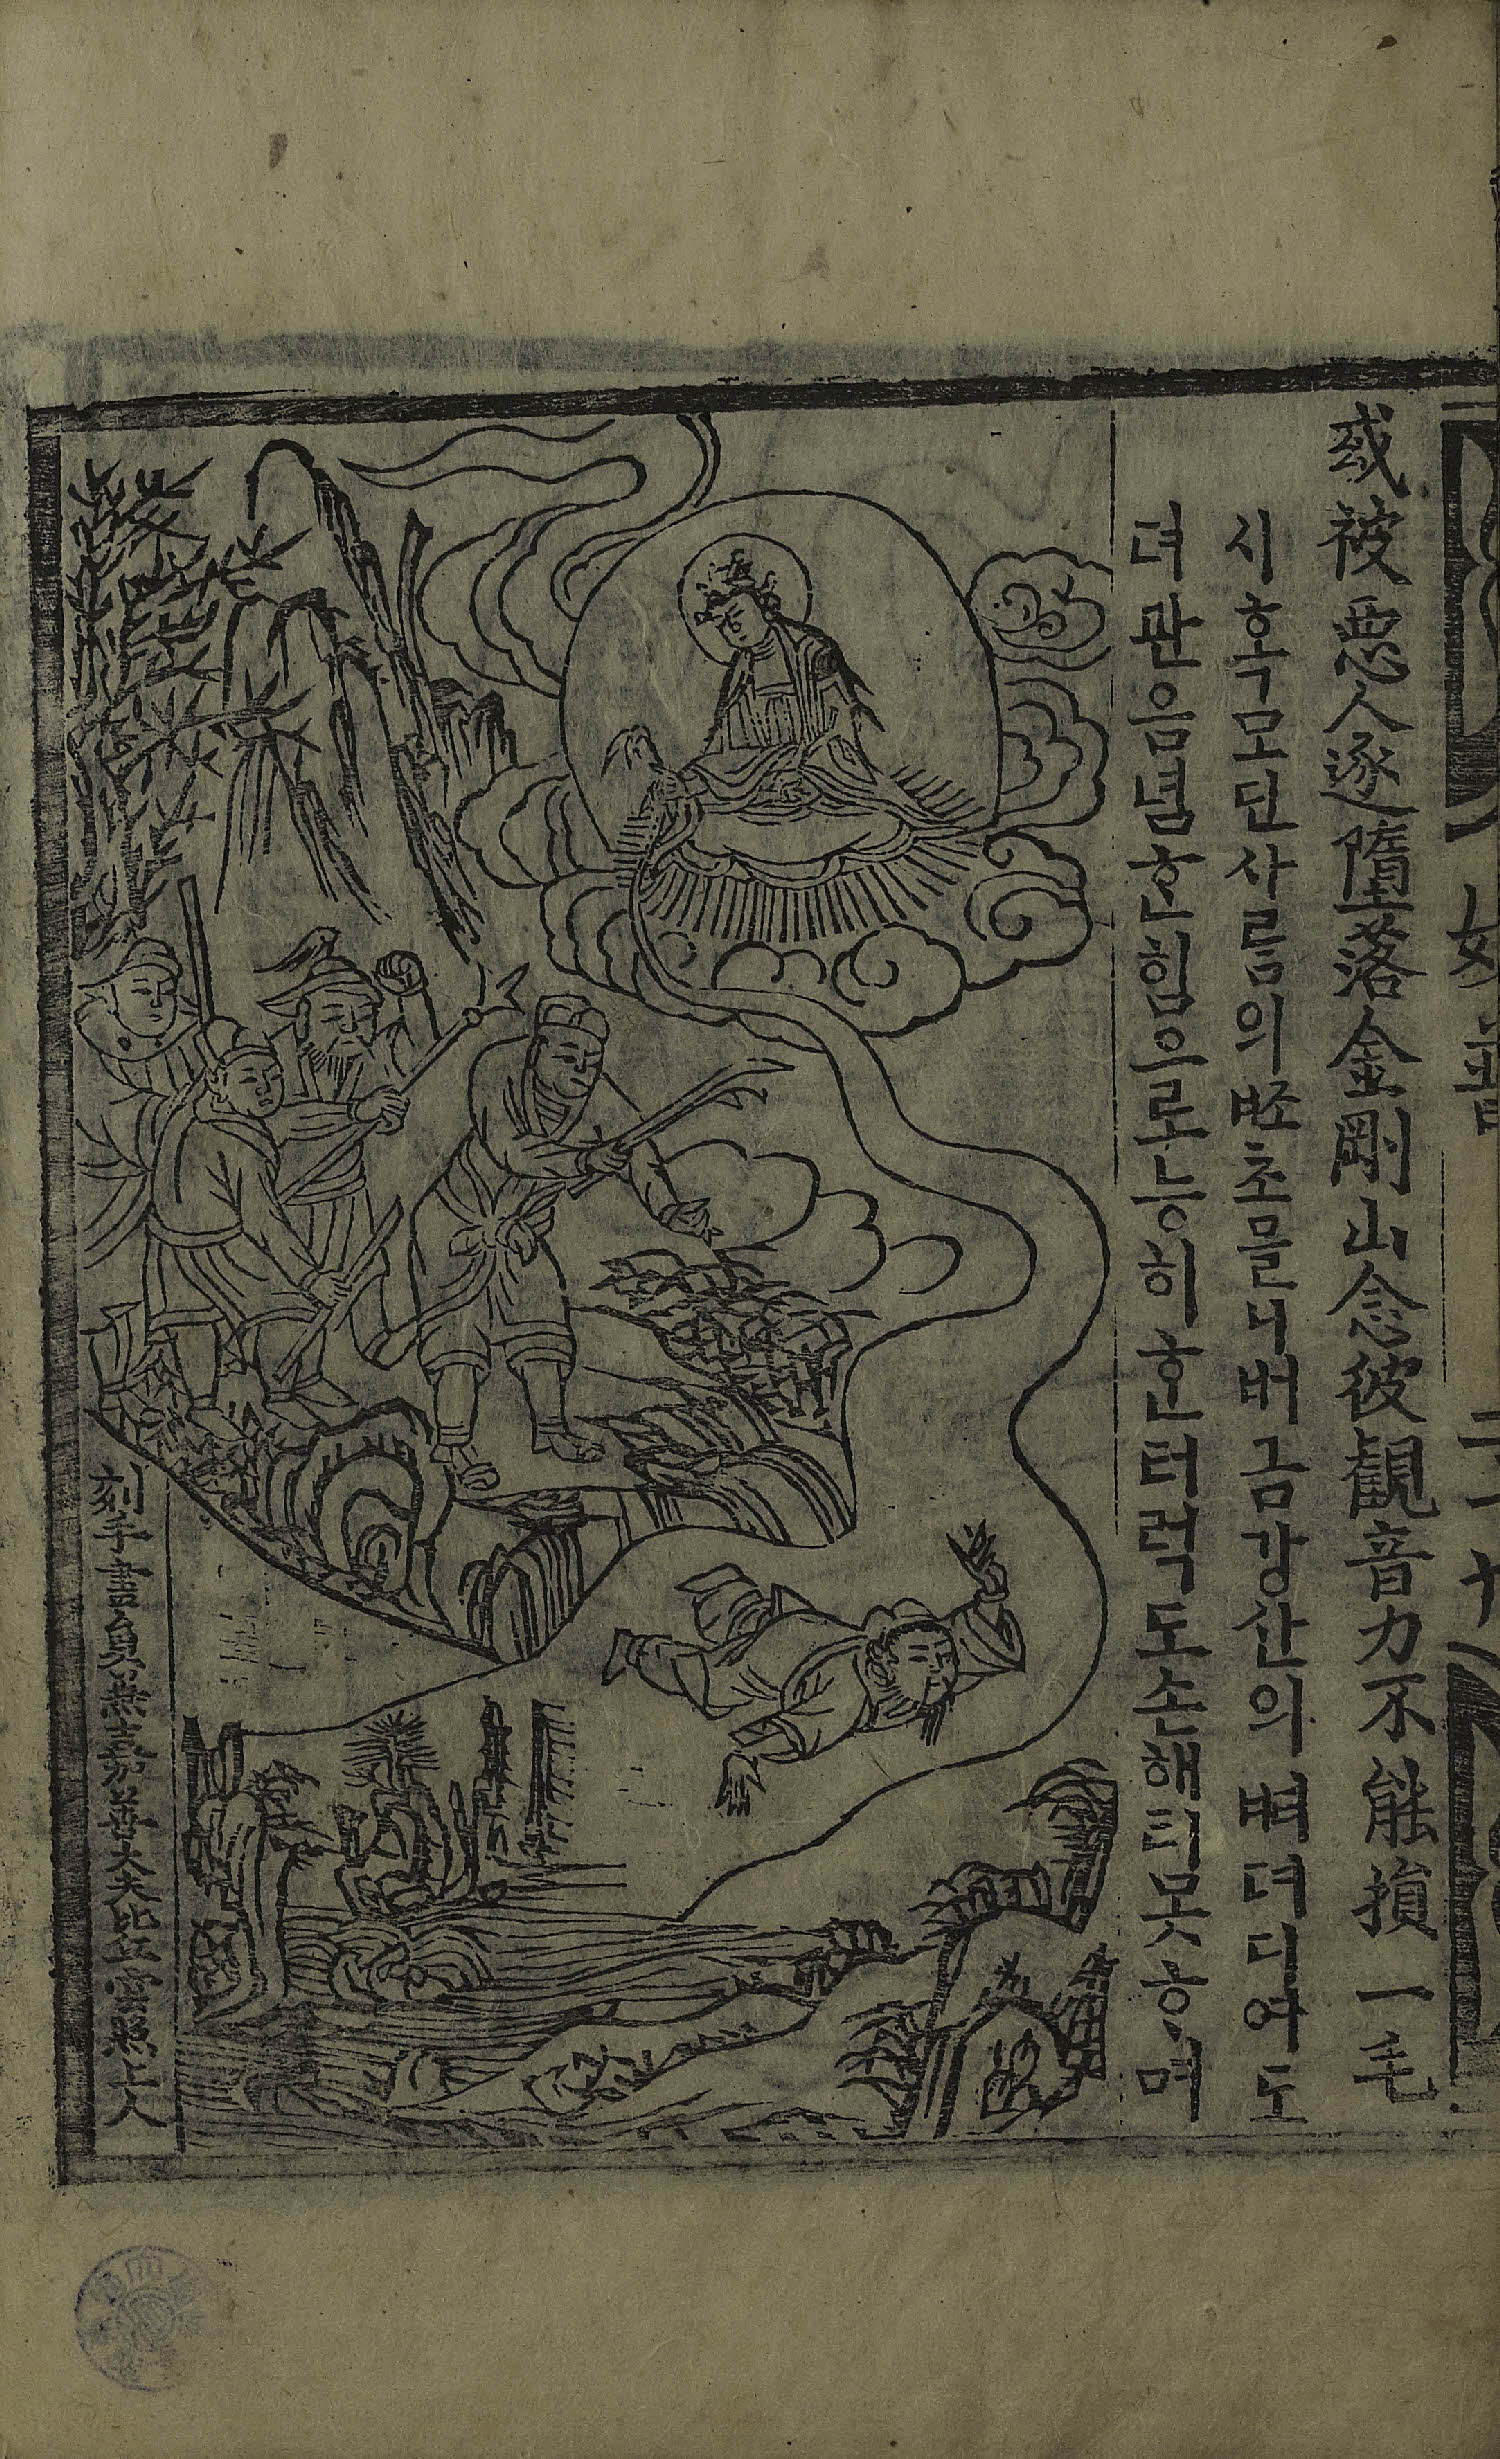 妙普 三十
或被惡人逐墮落金剛山念彼觀音力不能損一毛
시혹모딘사ᄅᆞᆷ의ᄧᅩ초믈니버금강산의ᄠᅥ디여도
뎌관음념ᄒᆞᆫ힘으로능히ᄒᆞᆫ터럭도손해티못ᄒᆞ며
刻手畫員兼嘉善大夫比丘雲照上人